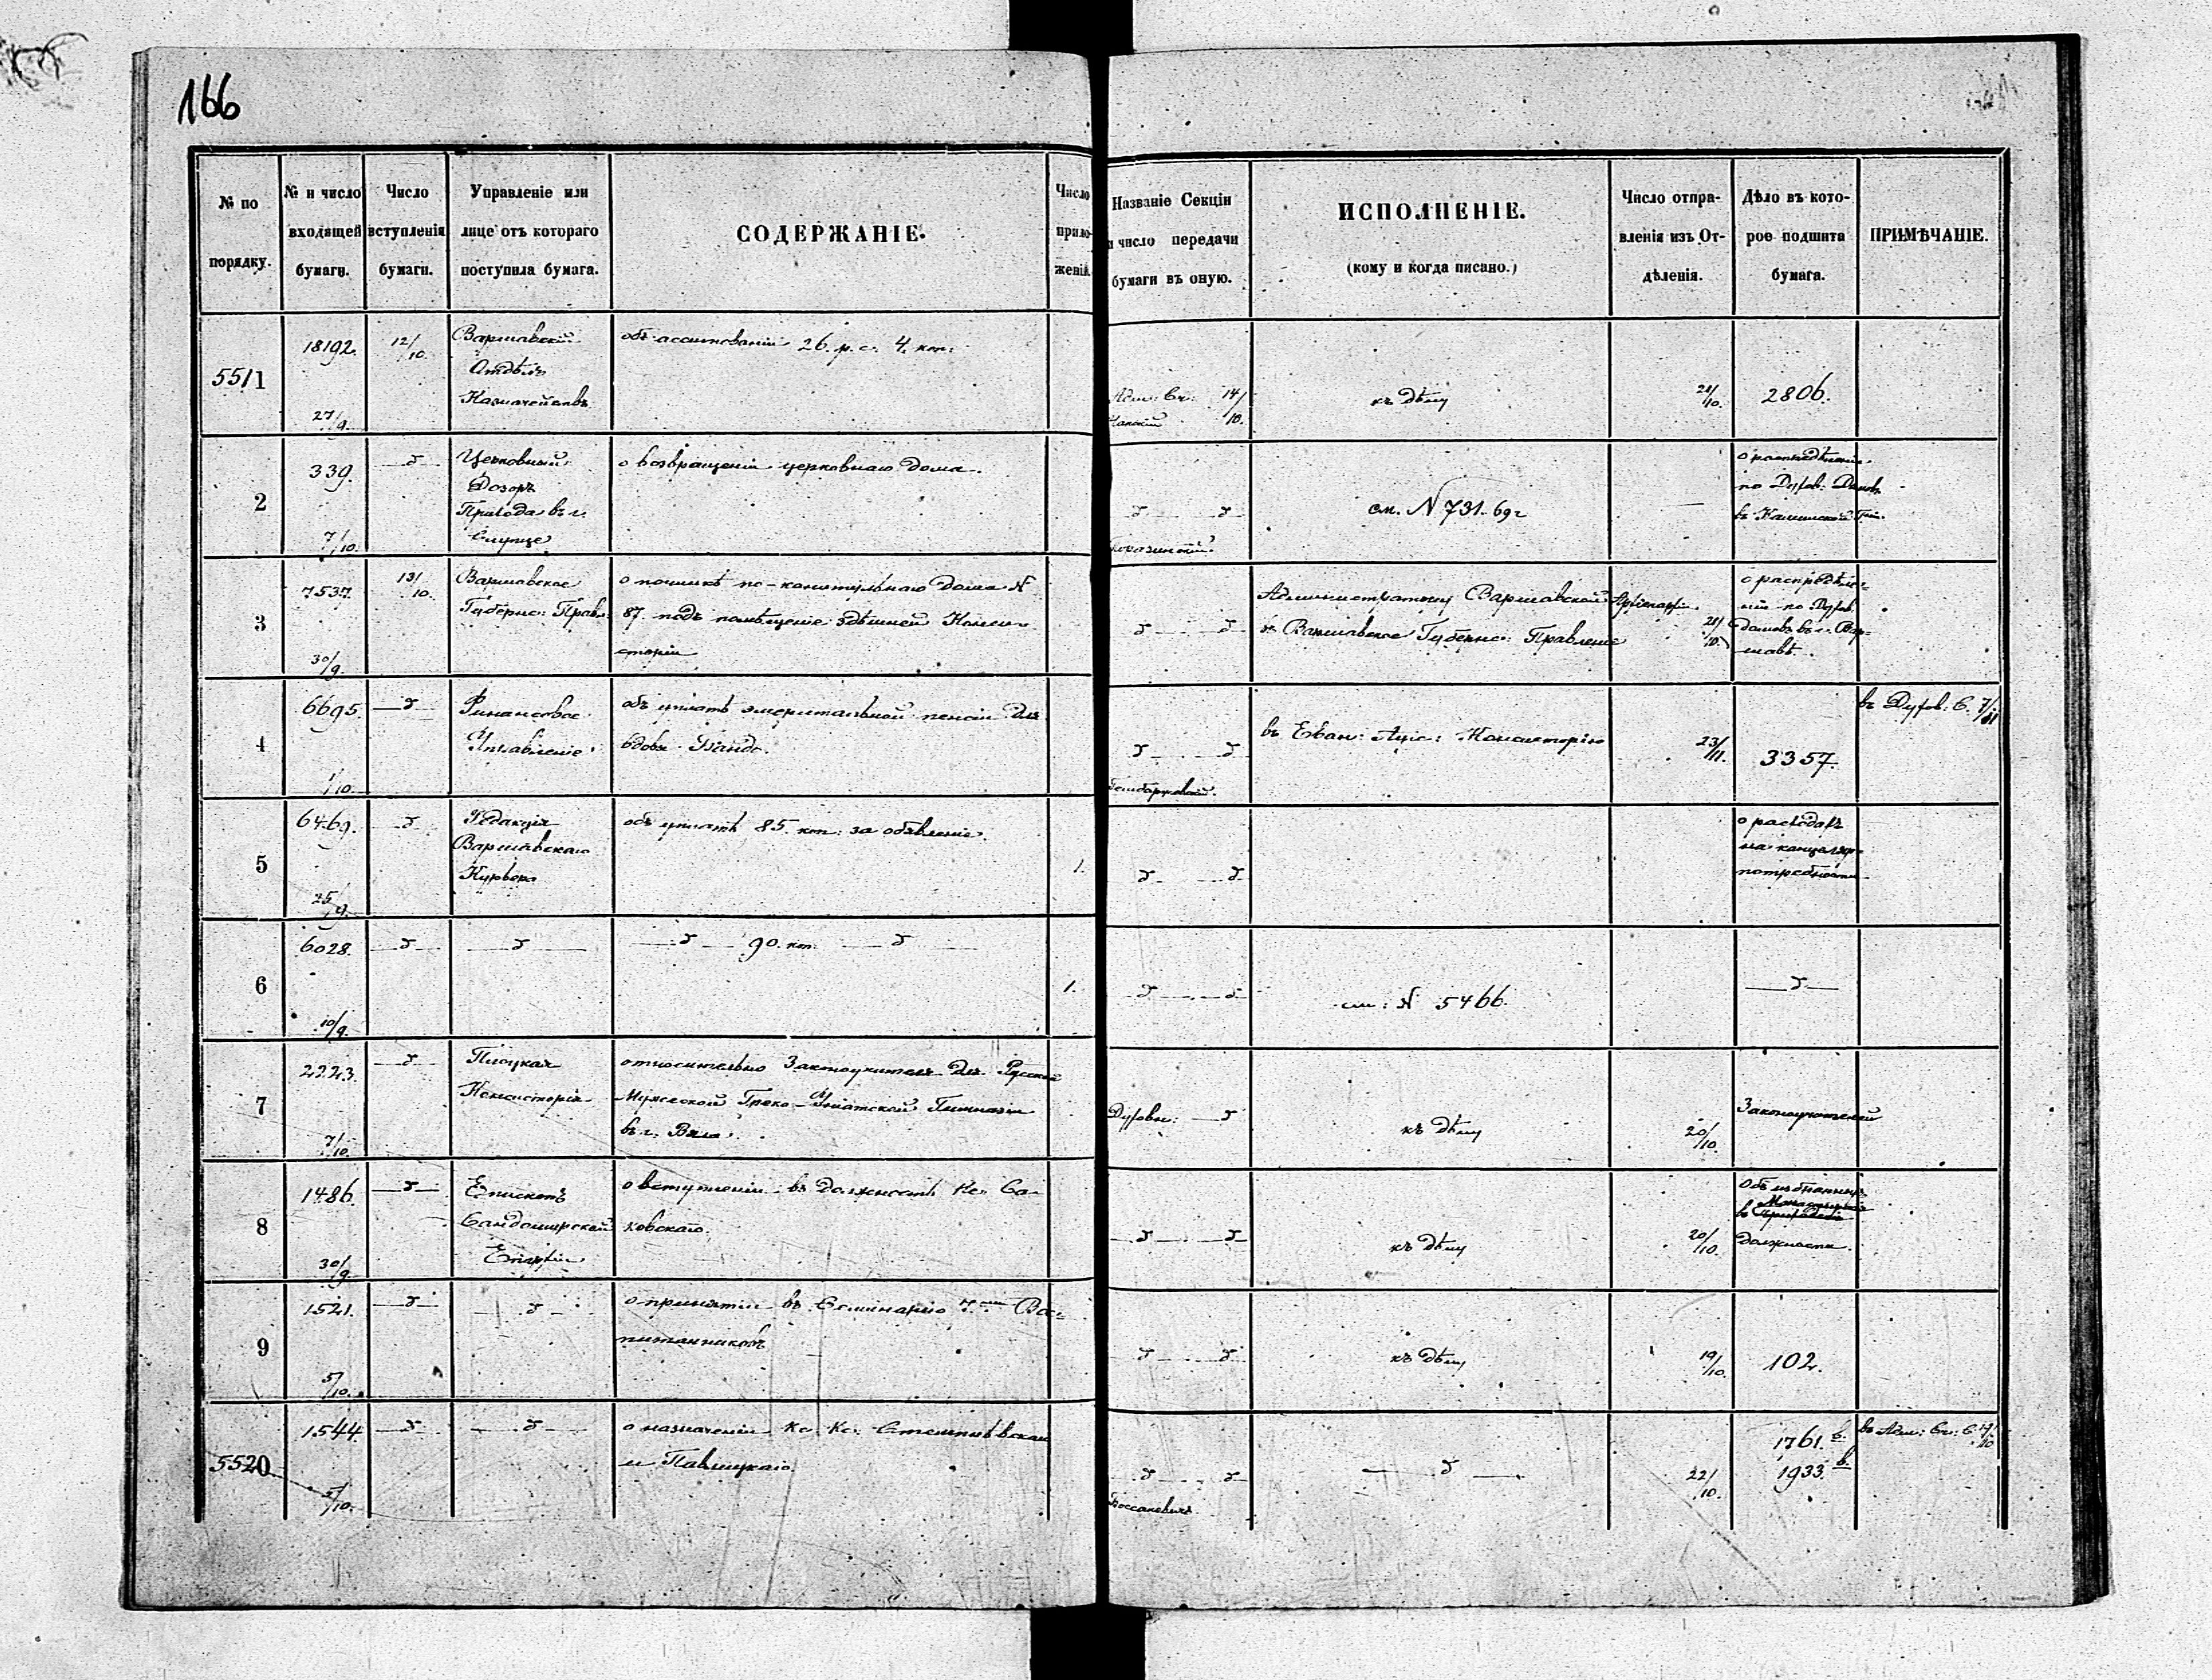 166
№ по порядку.
№ и число входящей бумаги.
Число вступленія бумаги.
Управленіе или лице отъ котораго поступила бумага.
СОДЕРЖАНІЕ.
Число приложеній.
Названіе Секціи и число передачи бумаги въ оную.
ИСПОЛНЕНІЕ.
(кому и когда писано.)
Число отправленія изъ Отдѣленія.
Дѣло въ которое подшита бумага.
ПРИМѢЧАНІЕ.
5511
18192.
27/9.
12/10.
Варшавскій
Отдѣлъ
Казначейства
объ ассигнованіи 26 р. с. 4. коп.
14/10.
къ дѣлу
21/10.
2806.
2
339.
7/10.
Церковный
Дозоръ
Прихода въ г.
Слупце
о возвращеніи церковнаго дома.
см. N 731. 69 г
по Духов. Домов.
въ Калишской Губ.
3
7537.
30/9.
13/10.
Варшавское
Губернс: Правл.
о починкѣ дома N
87. подъ помѣщеніе здѣшней Конси-
сторіи
Администратору Варшавской Архіепархіи
и Варшавское Губернс: Правленіе
21/10.
о распредѣле-
ніи по Духов.
домовъ въ г. Вар-
шавѣ.
4
6695.
1/10.
Финансовое
Управленіе
объ уплатѣ эмеритальной пенсіи для
вдовы
въ Еван: Аугс: Консисторію
23/11.
3357.
въ Духов. С. 7/11
5
6469.
25/9.
Редакція
Варшавскаго
Курьера
объ уплатѣ 85. коп. за объявленіе.
1.
о расходахъ
на канцеляр.
потребности
6
6028.
10/9.
90. коп.
1.
см: N 5466.
7
2223.
7/10.
Плоцкая
Консисторія
относительно Законоучителя для Русской
Мужеской Греко-Уніатской Гимназіи
въ г. Бяла.
Духовн:
къ дѣлу
20/10.
Законоучителей
8
1486.
30/9.
Епископъ
Сандомирской
Епархіи
о вступленіи въ должность Кс. Са-
ковскаго.
къ дѣлу
20/10.
должности.
9
1521.
5/10.
о принятіи въ Семинарію 7. Вос-
питанниковъ
къ дѣлу
19/10.
102.
5520
1544.
5/10.
о назначеніи Кс. Кс.
и Павлицкаго.
22/10.
1761.
1933.